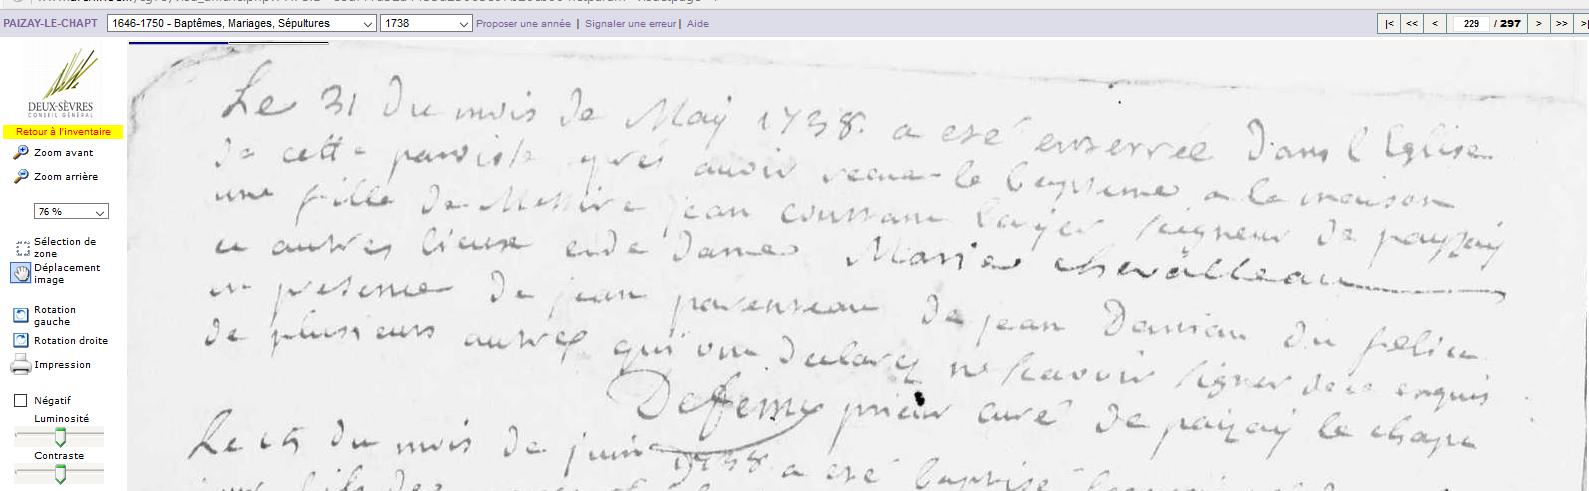 PAIZAY-LE-CHAPT 1646-1750 - Baptêmes, Mariages, Sépultures 1738 Proposer une année | Signaler une erreur | Aide |< << < 229 / 297 > >>
DEUX-SÈVRES
CONSEIL GÉNÉRAL
Retour à l'inventaire
Zoom avant
Zoom arrière
76 %
Sélection de
zone
Déplacement
image
Rotation
gauche
Rotation droite
Impression
Négatif
Luminosité
Contraste
Le 31 du mois de May 1738. a esté enterrée dans l Eglise
de cette paroisse aprés avoir receue le bapteme a la maison
une fille de Messire jean seigneur de payzay
et autres lieux et de dame Marie chevalleau
en presence de jean de jean du
de plusieurs autres qui ont declaré ne scavoir signer de ce enquis
Deffemy prieur curé de paizay le chapt
Le 15 du mois de juin 1738. a esté baptisé
un fils